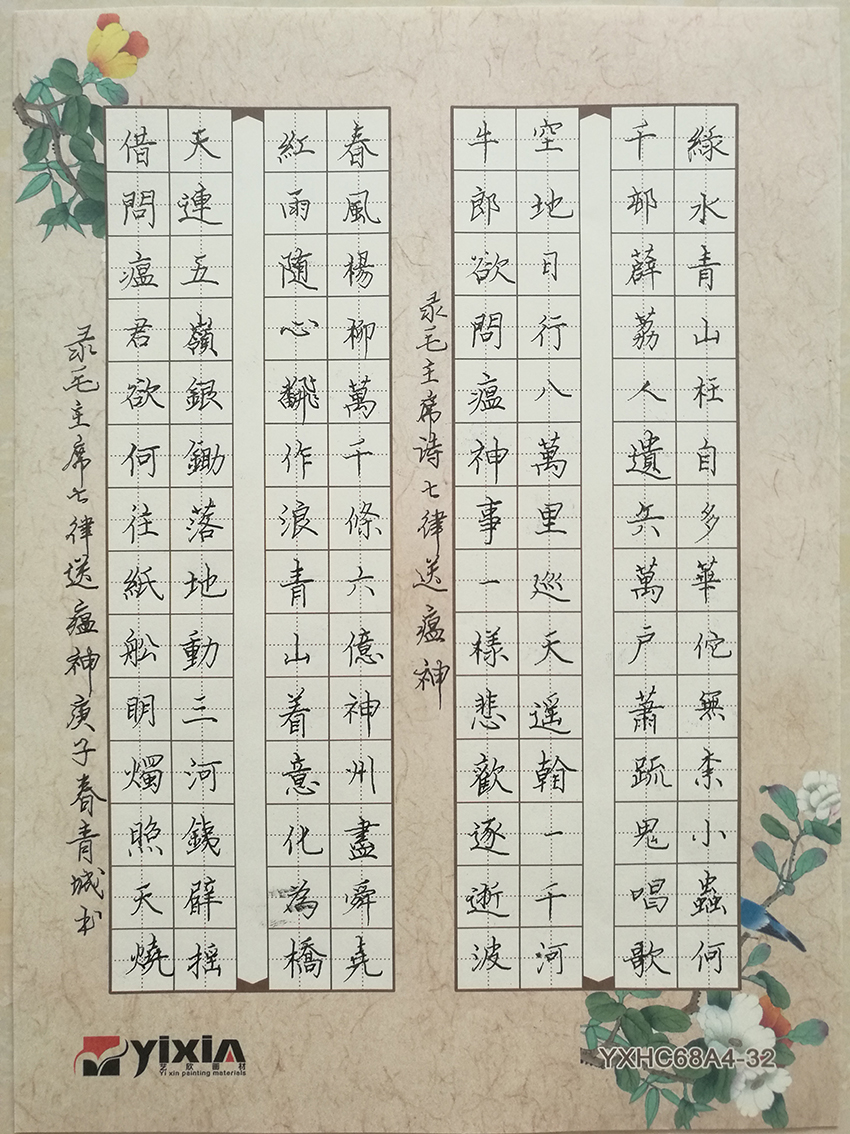 綠水青山枉自多華佗無柰小蟲何
千邨薜荔人遺兵萬戶蕭疏鬼唱歌
空地日行八萬里巡天遥翰一千河
牛郎欲問瘟神事一樣悲歡逐逝波
录毛主席诗七律送瘟神
春風楊柳萬千條六億神州盡舜堯
紅雨随心翻作浪青山着意化為橋
天連五嶺銀鋤落地動三河鐵臂摇
借問瘟君欲何往紙船明燭照天燒
录毛主席七律送瘟神庚子春青城书
yixin
艺欣画材
Yi xin painting materials
YXHC68A4-32